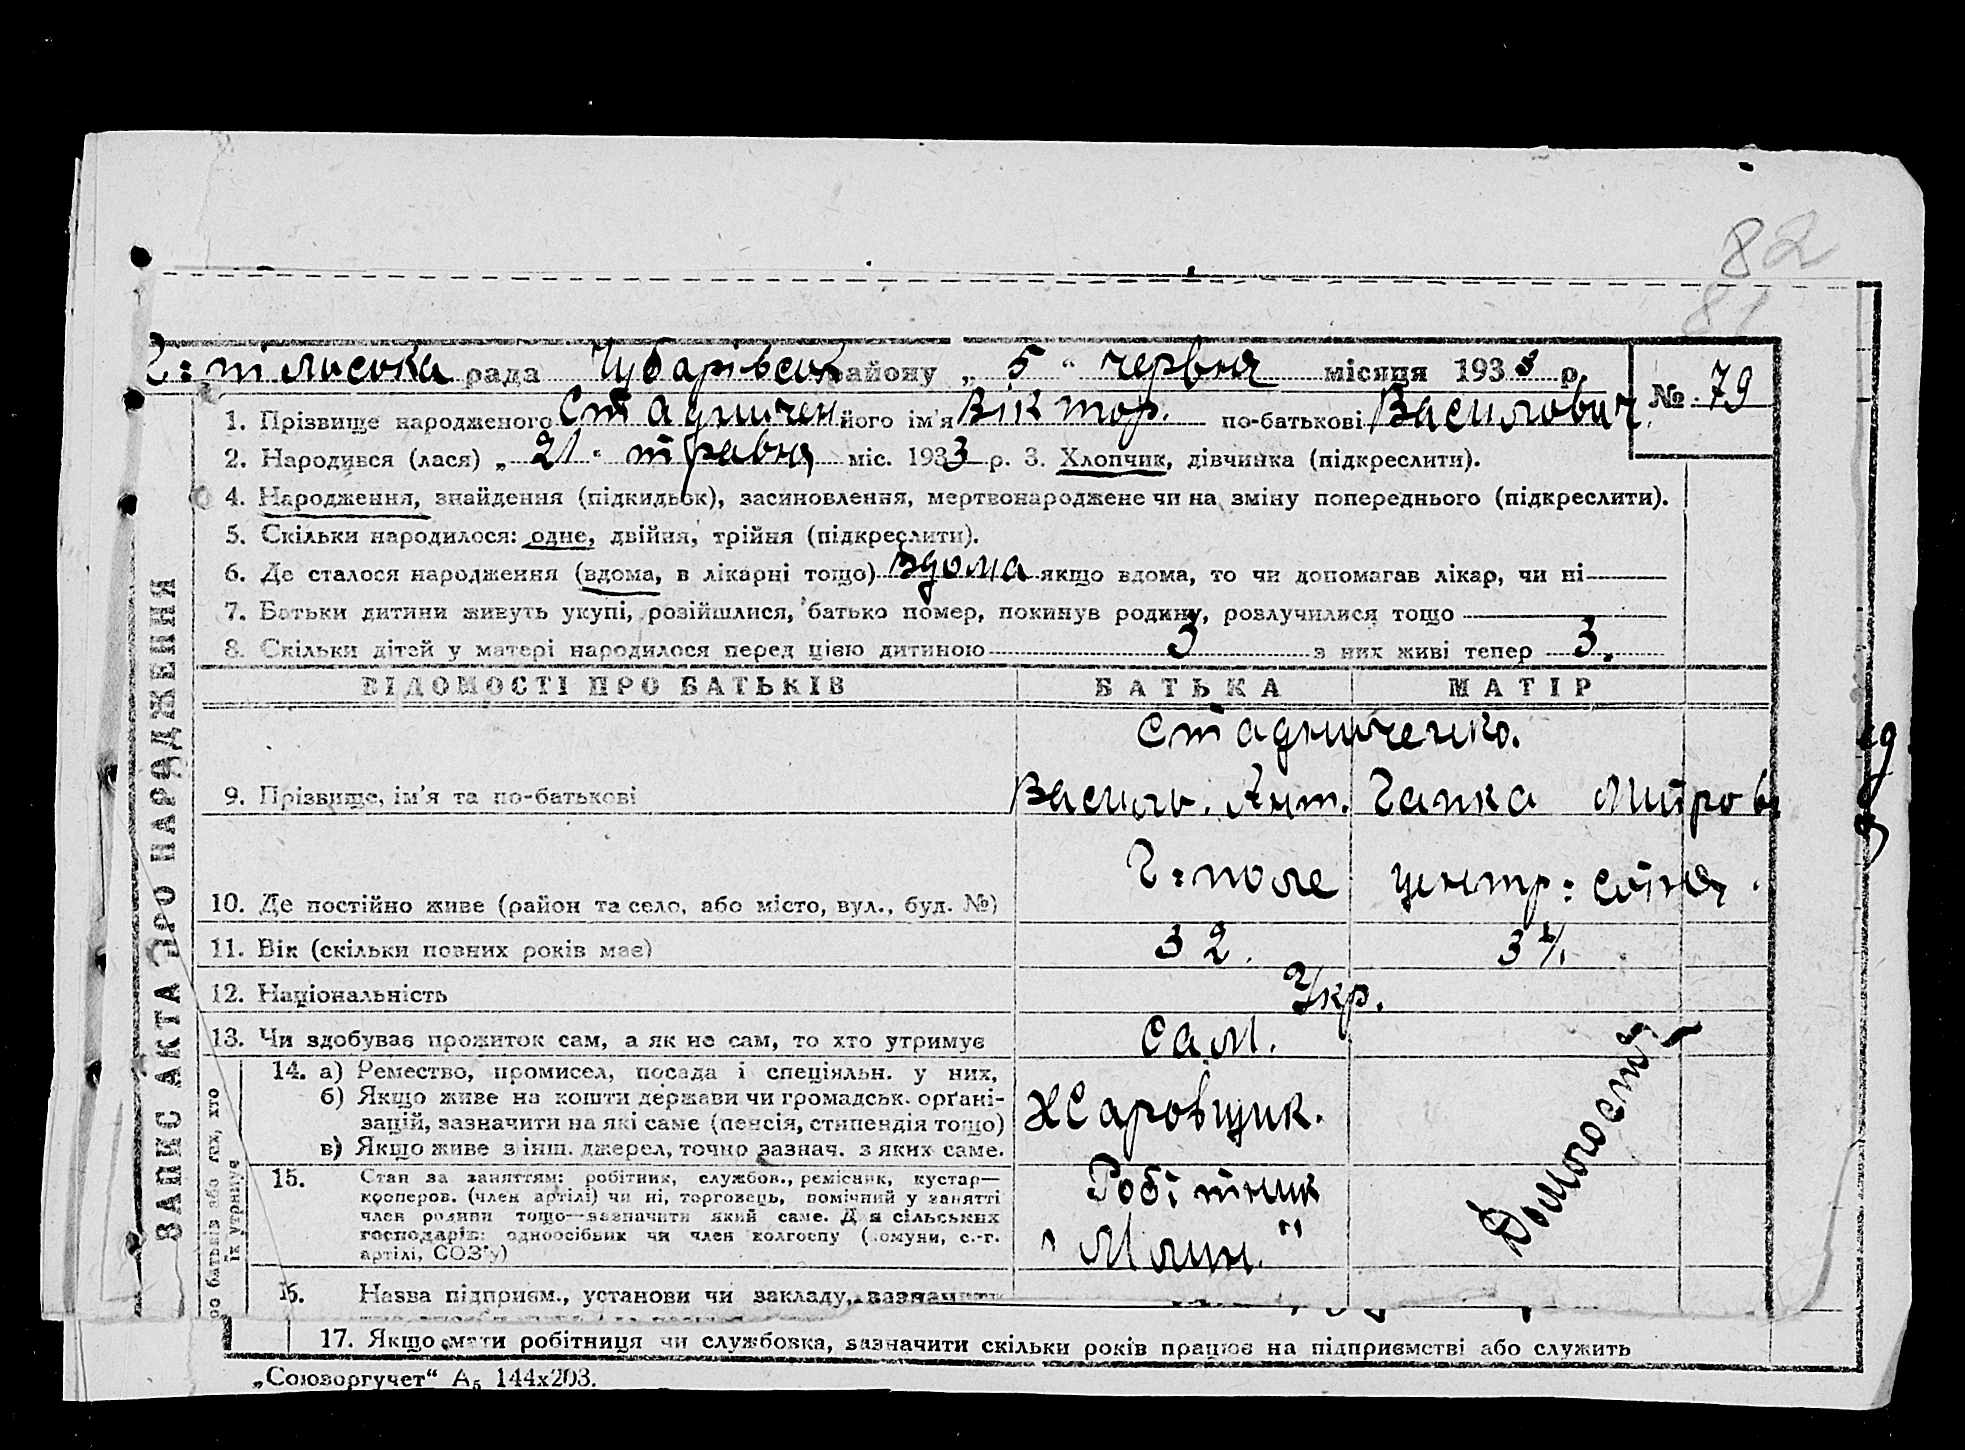 82
81
Г:пільська рада Чубарівськ району „ 5 “ червня місяця 1933 р.
№ 79
1. Прізвище народженого Стадничен. його ім'я Віктор. по-батькові Василович.
2. Народився (лася) „ 21 “ травня міс. 1933 р. 3. Хлопчик, дівчинка (підкреслити).
4. Народження, знайдення (підкидьок), засиновлення, мертвонароджене чи на зміну попереднього (підкреслити).
5. Скільки народилося: одне, двійня, трійня (підкреслити).
6. Де сталося народження (вдома, в лікарні тощо) Вдома якщо вдома, то чи допомагав лікар, чи ні
7. Батьки дитини живуть укупі, розійшлися, батько помер, покинув родину, розлучилися тощо
8. Скільки дітей у матері народилося перед цією дитиною 3 з них живі тепер 3.
ЗАПИС АКТА ПРО НАРАДЖЕННЯ
ВІДОМОСТІ ПРО БАТЬКІВ БАТЬКА МАТІР
Стадниченко.
9. Прізвище, ім'я та по-батькові Василь. Ант. Ганка Митров
10. Де постійно живе (район та село, або місто, вул., буд. №) Г:поле центр: сотня.
11. Вік (скільки повних років має) 32. 31
12. Національність Укр.
13. Чи здобуває прожиток сам, а як не сам, то хто утримує Сам.
14. а) Ремество, промисел, посада і спеціяльн. у них,
б) Якщо живе на кошти держави чи громадськ. орґані-
зацій, зазначити на які саме (пенсія, стипендія тощо) Жаровщик.
в) Якщо живе з інш. джерел, точно зазнач. з яких саме.
Домогоспод
15. Стан за заняттям: робітник, службов., ремісник, кустар—
кооперов. (член артілі) чи ні, торговець, помічний у занятті Робітник
член родини тощо—зазначити який саме. Для сільських
господарів: одноосібник чи член колгоспу (комуни, с.-г. "Млин."
артілі, СОЗ'у)
про батьків або тих, хто
їх утримує
16. Назва підприєм., установи чи закладу, зазначити
17. Якщо мати робітниця чи службовка, зазначити скільки років працює на підприємстві або служить
„Союзоргучет“ А5 144х203.